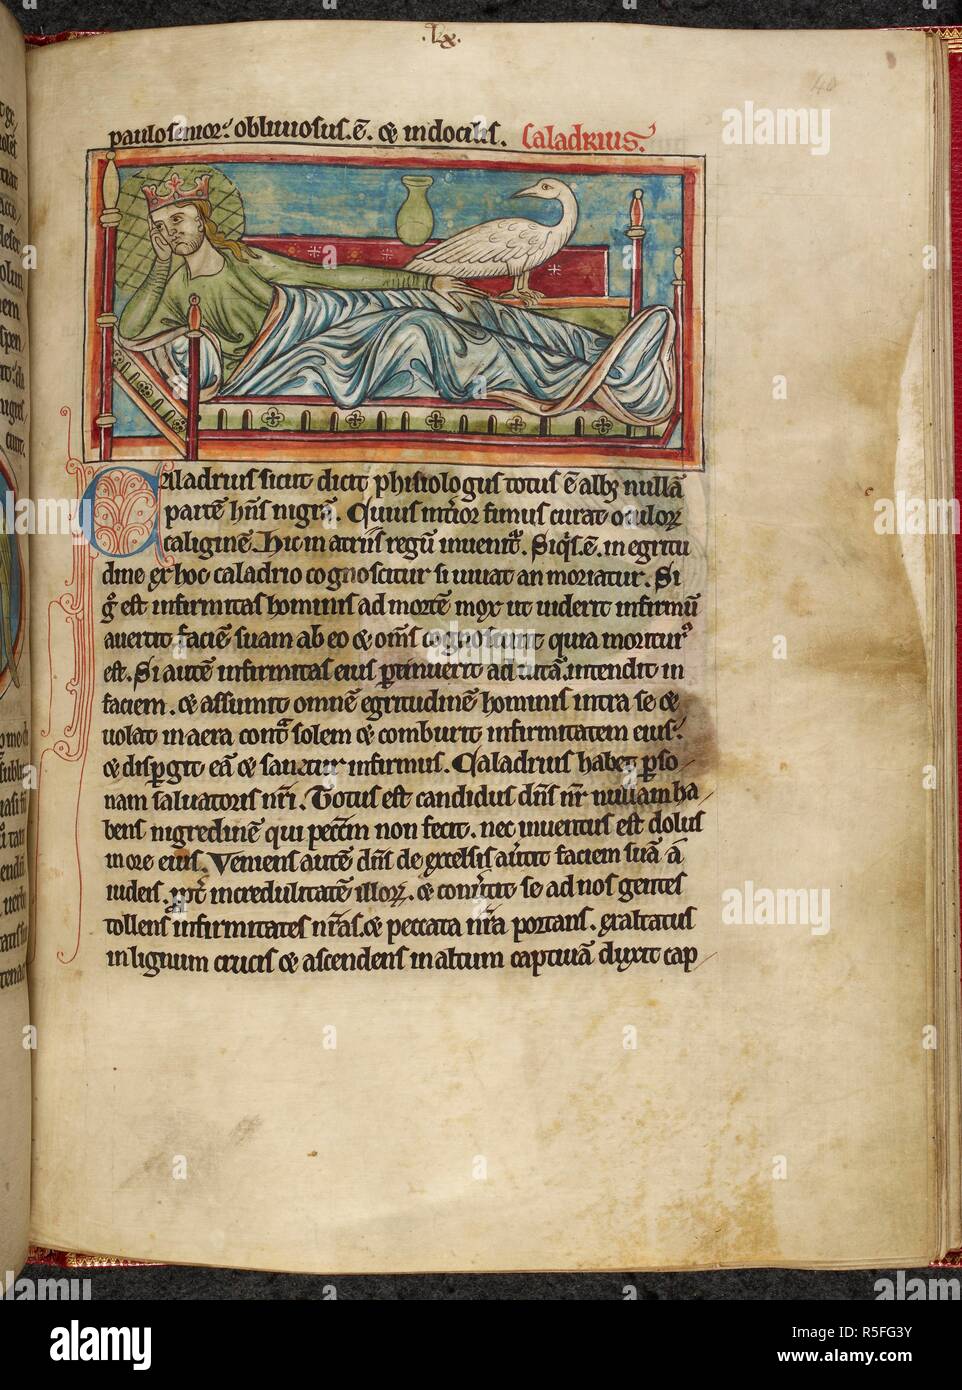 .Lx.
40
paulo semor: obliuiosus.ē. & indocilis. Caladrius.
Caladrius sicut dicit phisiologus totus ē alb; nullā
partē hn̄s nigrā. Cuius int̓ior fimus curat oculoꝝ
caliginē. Hic in atriis regū inuenit᷑. Siq̄s.ē. in egritu
dine ex hoc caladrio cognoscitur si uiuat an moriatur. Si
g̊ est infirmitas hominis ad mortē mox ut uiderit infirmū
auertit faciē suam ab eo & om̄s cognoscunt quia moritur᷑
est. Si autē infirmitas eius ꝑtinuerit ad uitā. intendit in
faciem. & assumit omnē egritudinē hominis intra se &
uolat in aera cont̄ solem & comburit infirmitatem eius.
& disꝑgit eā & sanatur infirmus. Caladrius habet ꝑso
nam saluatoris nr̄i. Totus est candidus dn̄s nr̄ nullam ha
bens nigredinē qui pecc̄m non fecit. nec inuentus est dolus
in ore eius. Veniens autē dn̄s de excelsis au̓tit faciem suā a
iudeis. ꝓpt̓ incredulitatē illoꝝ. & conu̓tit se ad nos gentes
tollens infirmitates nr̄as. & peccata nr̄a portans. exaltatus
in lignum crucis & ascendens in altum captiuā duxit cap
alamy
Image ID: R5FG3Y
www.alamy.com